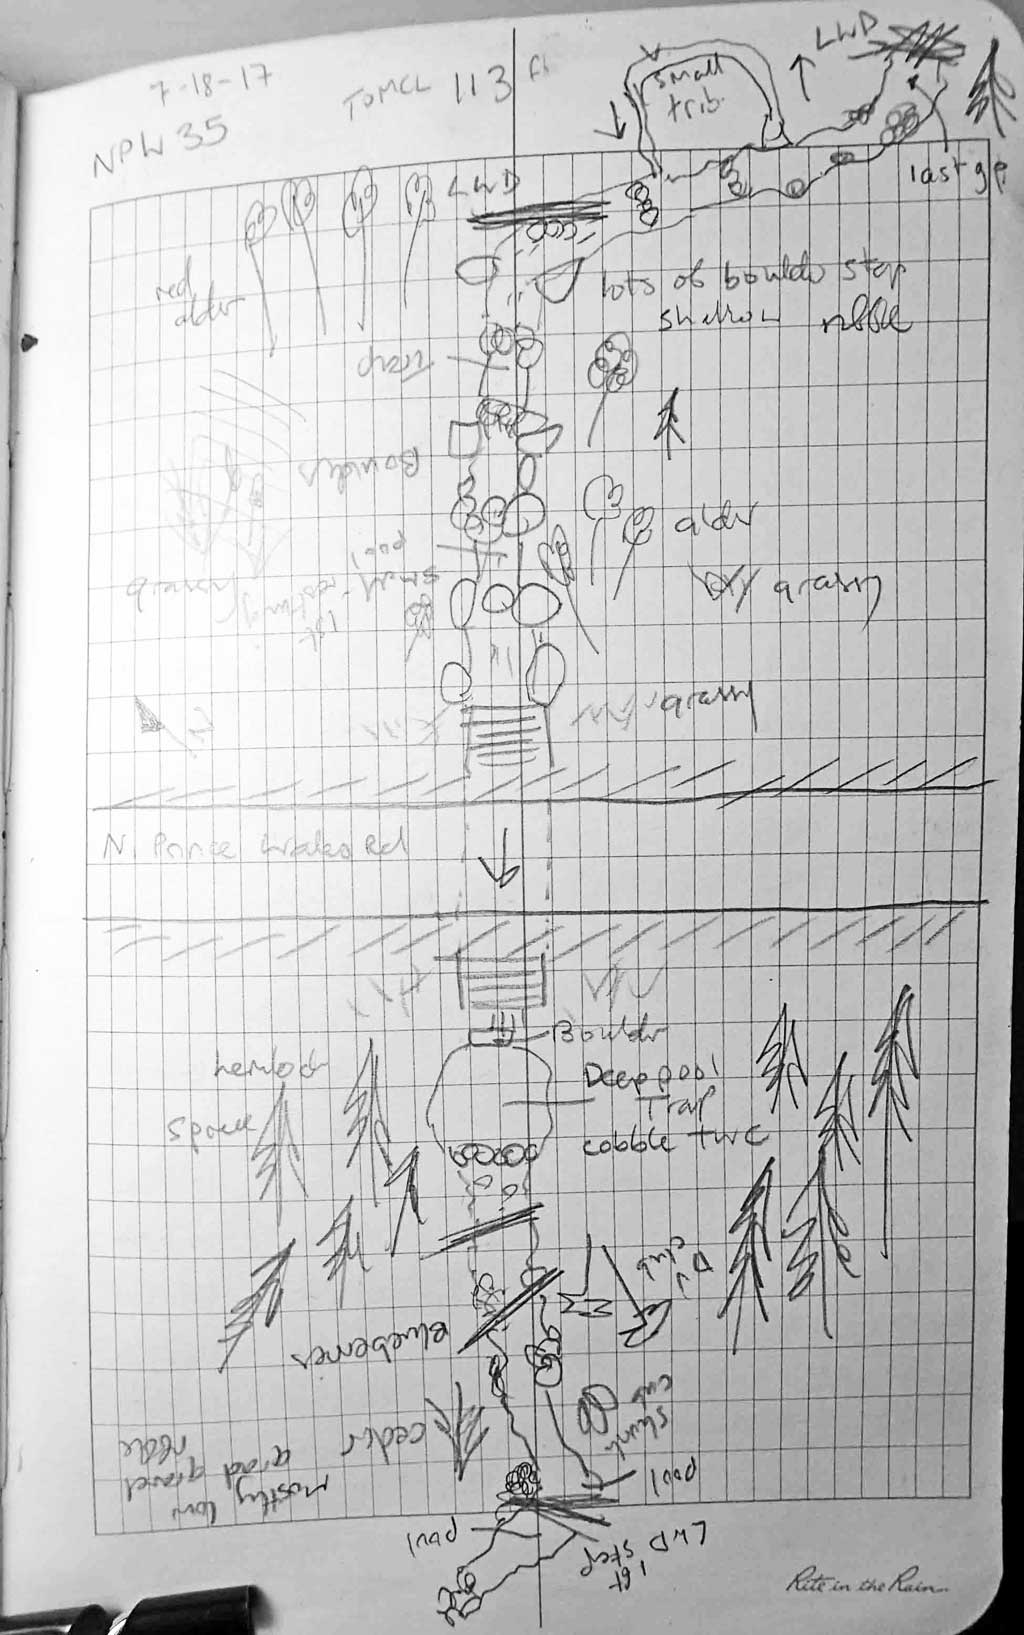 7-18-17
NPW 35
TOMCL 113 ft
small
trib.
LWD
last gp
LWD
red
alder
lots of bouldr step
shallow riffle
Trap
Bouldrs
alder
grassy
pool
small - resting
1st
grassy
N. Prince Wales Rd
Bouldr
Deep pool
Trap
cobble TWC
hemlock
Spruce
D.
club
Blueberries
skunk
cab
cedar
mostly low
grad gravel
riffle
pool
pool
LWD
1st step
Rite in the Rain